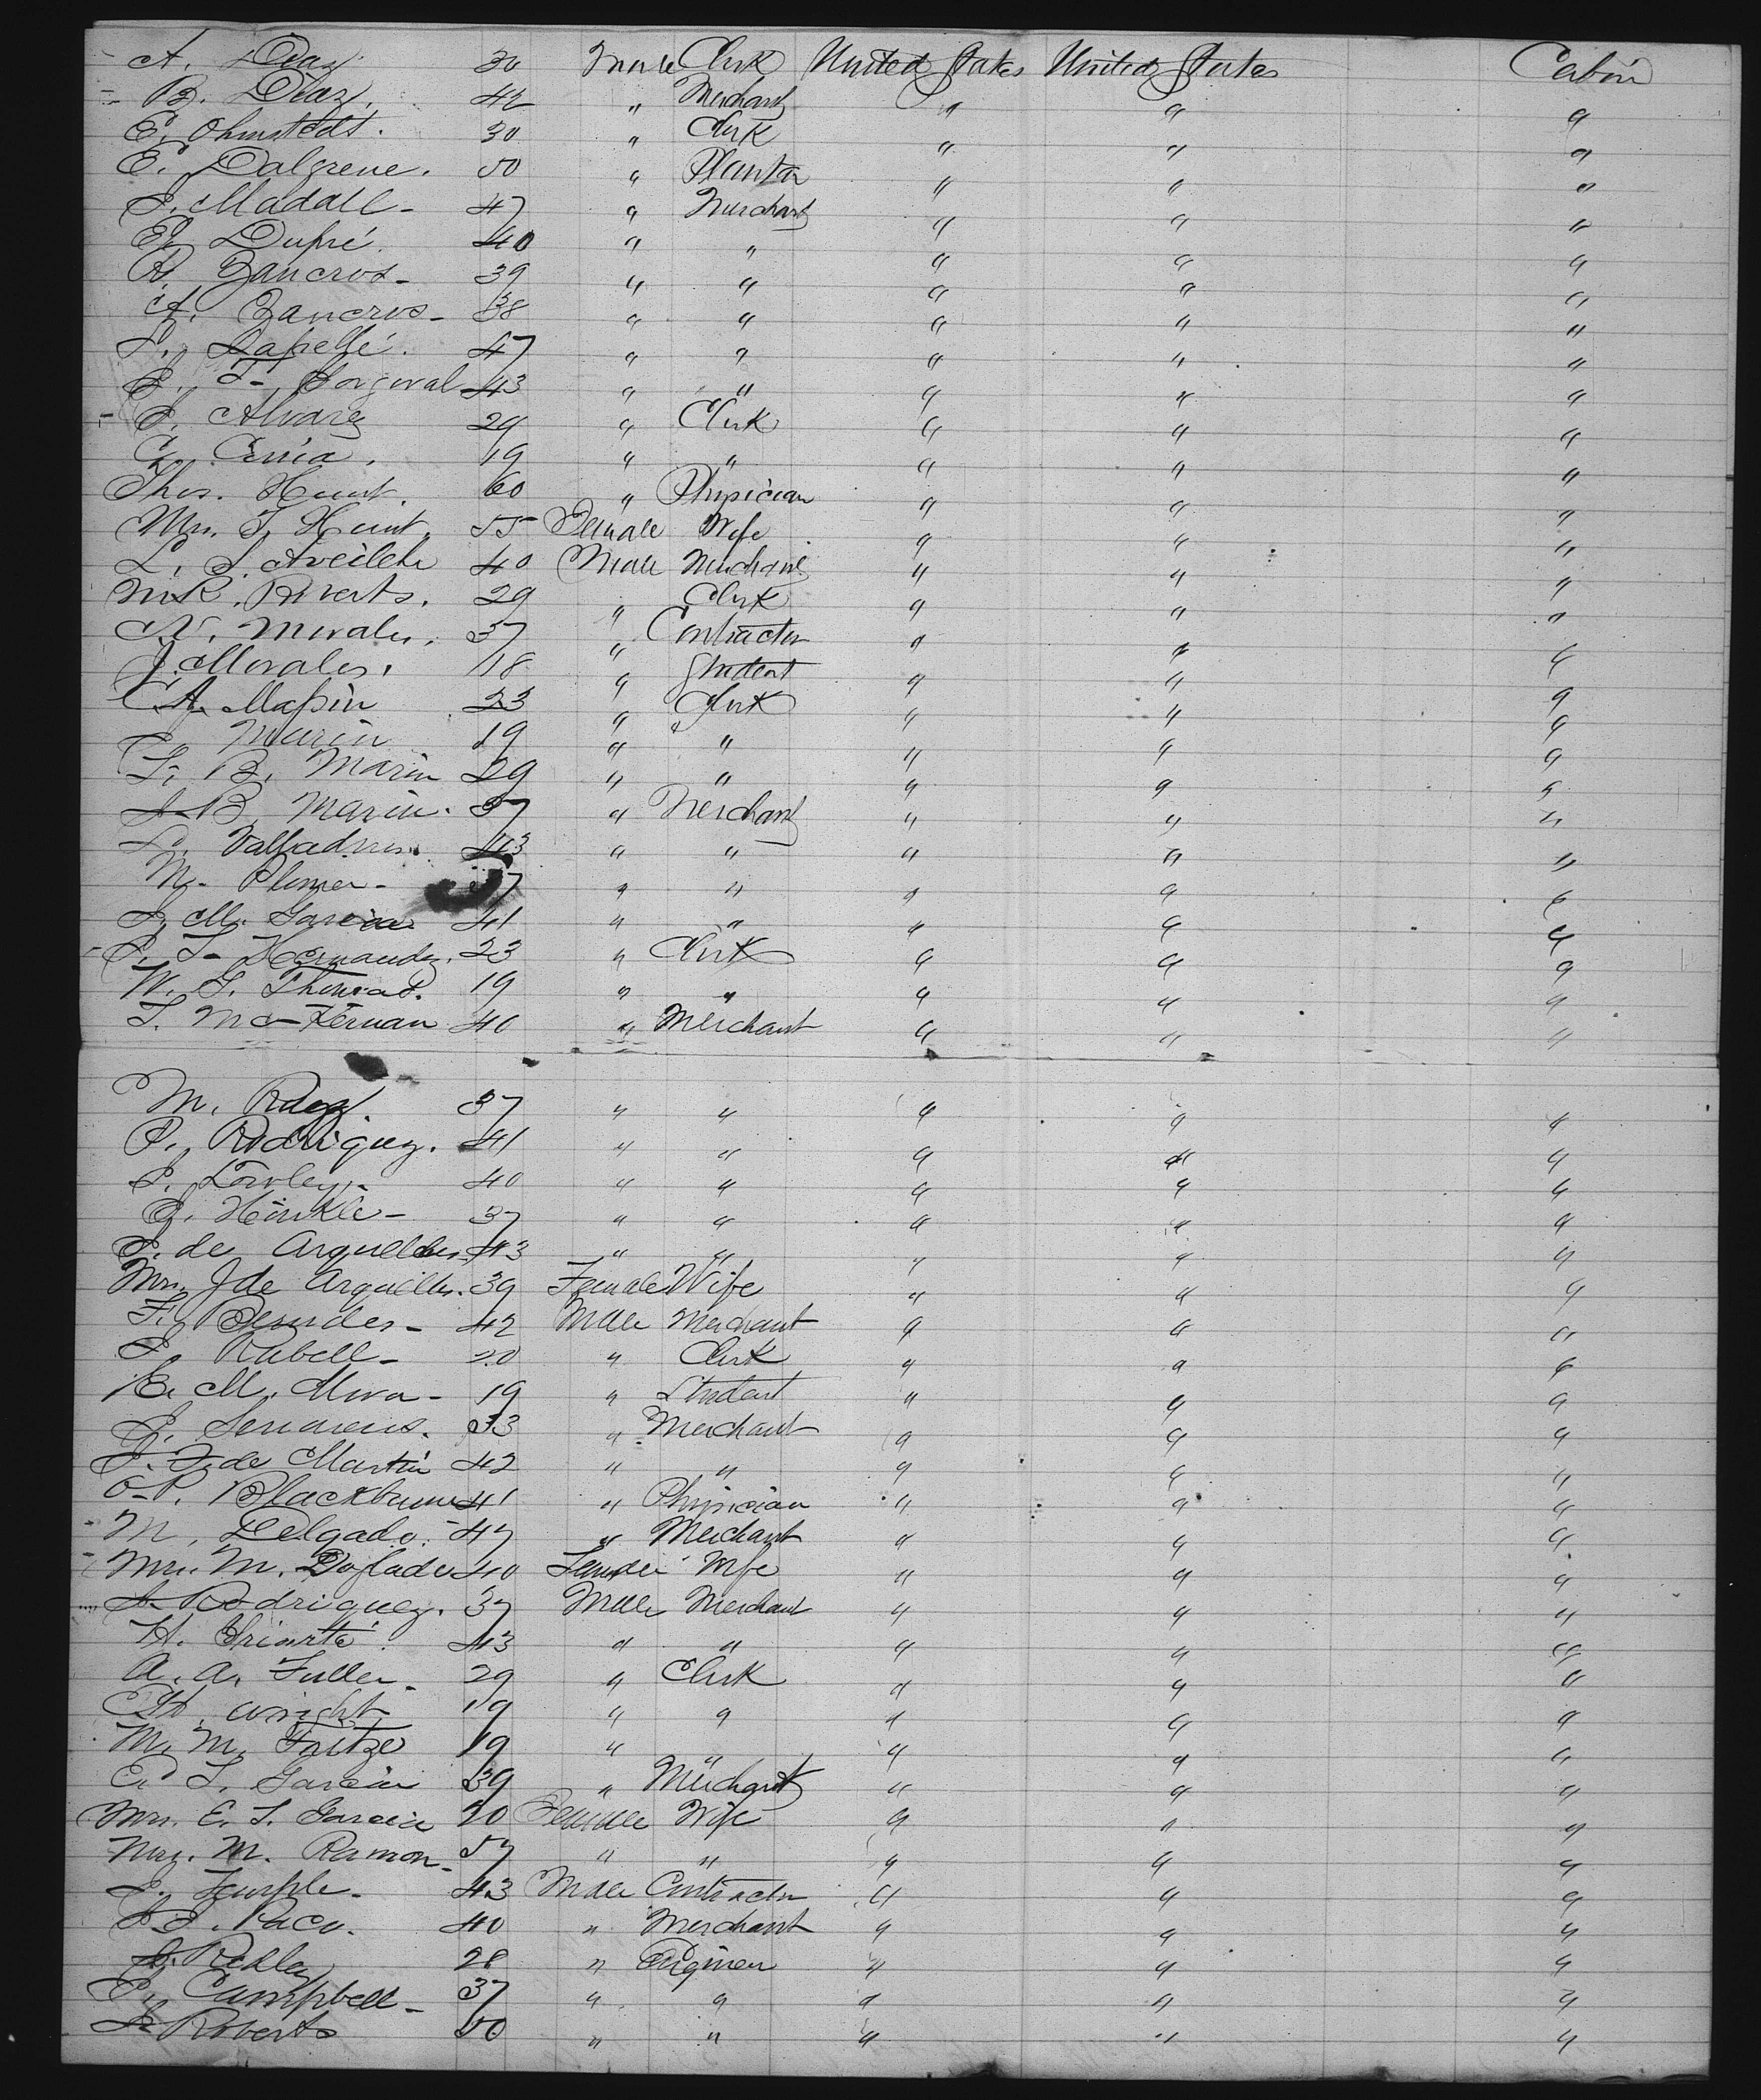 A. Diaz 30 Male Clerk United States United States Cabin
B. Diaz. 42 " Merchant " " "
E. Ohmstedt. 30 " Clerk " " "
E. Dalgrene. 50 " Planter " " "
J. Madall - 47 " Merchant " " "
E. Dupré. 40 " " " " "
R. Zancros - 39 " " " " "
A. Zancros - 38 " " " " "
L. Lapelle. 47 " " " " "
43 " " " " "
- J. Alvarez 29 " Clerk " " "
19 " " " " "
Thos. Hunt. 60 " Physician " " "
Mrs. T. Hunt. 55 Female Wife " " "
L. S. 40 Male Merchant " " "
29 " Clerk " " "
N. Morales. 37 " Contractor " " "
J. Morales. 18 " Student " " "
A. 23 " Clerk " " "
Marin 19 " " " " "
F. B. Marin 29 " " " " "
J. B. Marin. 37 " Merchant " " "
43 " " " " "
M. 37 " " " " "
J. M. Garcia 41 " " " " "
- P. T. Hernandez. 23 " Clerk " " "
W. S. 19 " " " " "
T. Mc-Kernan 40 " Merchant " " "
M. 37 " " " " "
P. Rodriguez. 41 " " " " "
40 " " " " "
Hinkle - 37 " " " " "
de Arguelles 43 " " " " "
Mrs. J de Arguelles. 39 Female Wife " " "
F. 42 Male Merchant " " "
Rabell - 20 " Clerk " " "
E. M. Mora - 19 " Student " " "
33 " Merchant " " "
de Martin 42 " " " " "
Blackburn 41 " Physician " " "
- M. Delgado. 47 " Merchant " " "
- Mrs. M. 40 Female Wife " " "
J. Rodriguez. 37 Male Merchant " " "
H. Iriarte. 43 " " " " "
A. A. Fuller. 29 " Clerk " " "
H. Wright 19 " " " " "
M. M. Fritze 19 " " " " "
E. T. Garcia 39 " Merchant " " "
Mrs. E. T. Garcia 20 Female Wife " " "
M. Ramon - 57 " " " " "
J. Temple - 43 Male Contractor " " "
Paco. 40 " Merchant " " "
28 " " " "
Campbell - 37 " " " " "
J. Roberts 50 " " " " "